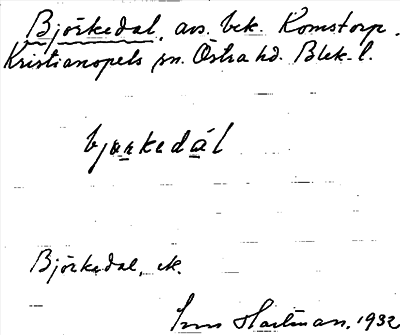 Björkedal, avs. bek. Komstorp.
Kristianopels sn. Östra hd. Blek. l.
björkedál
Björkedal, ek.
Hartman, 1932